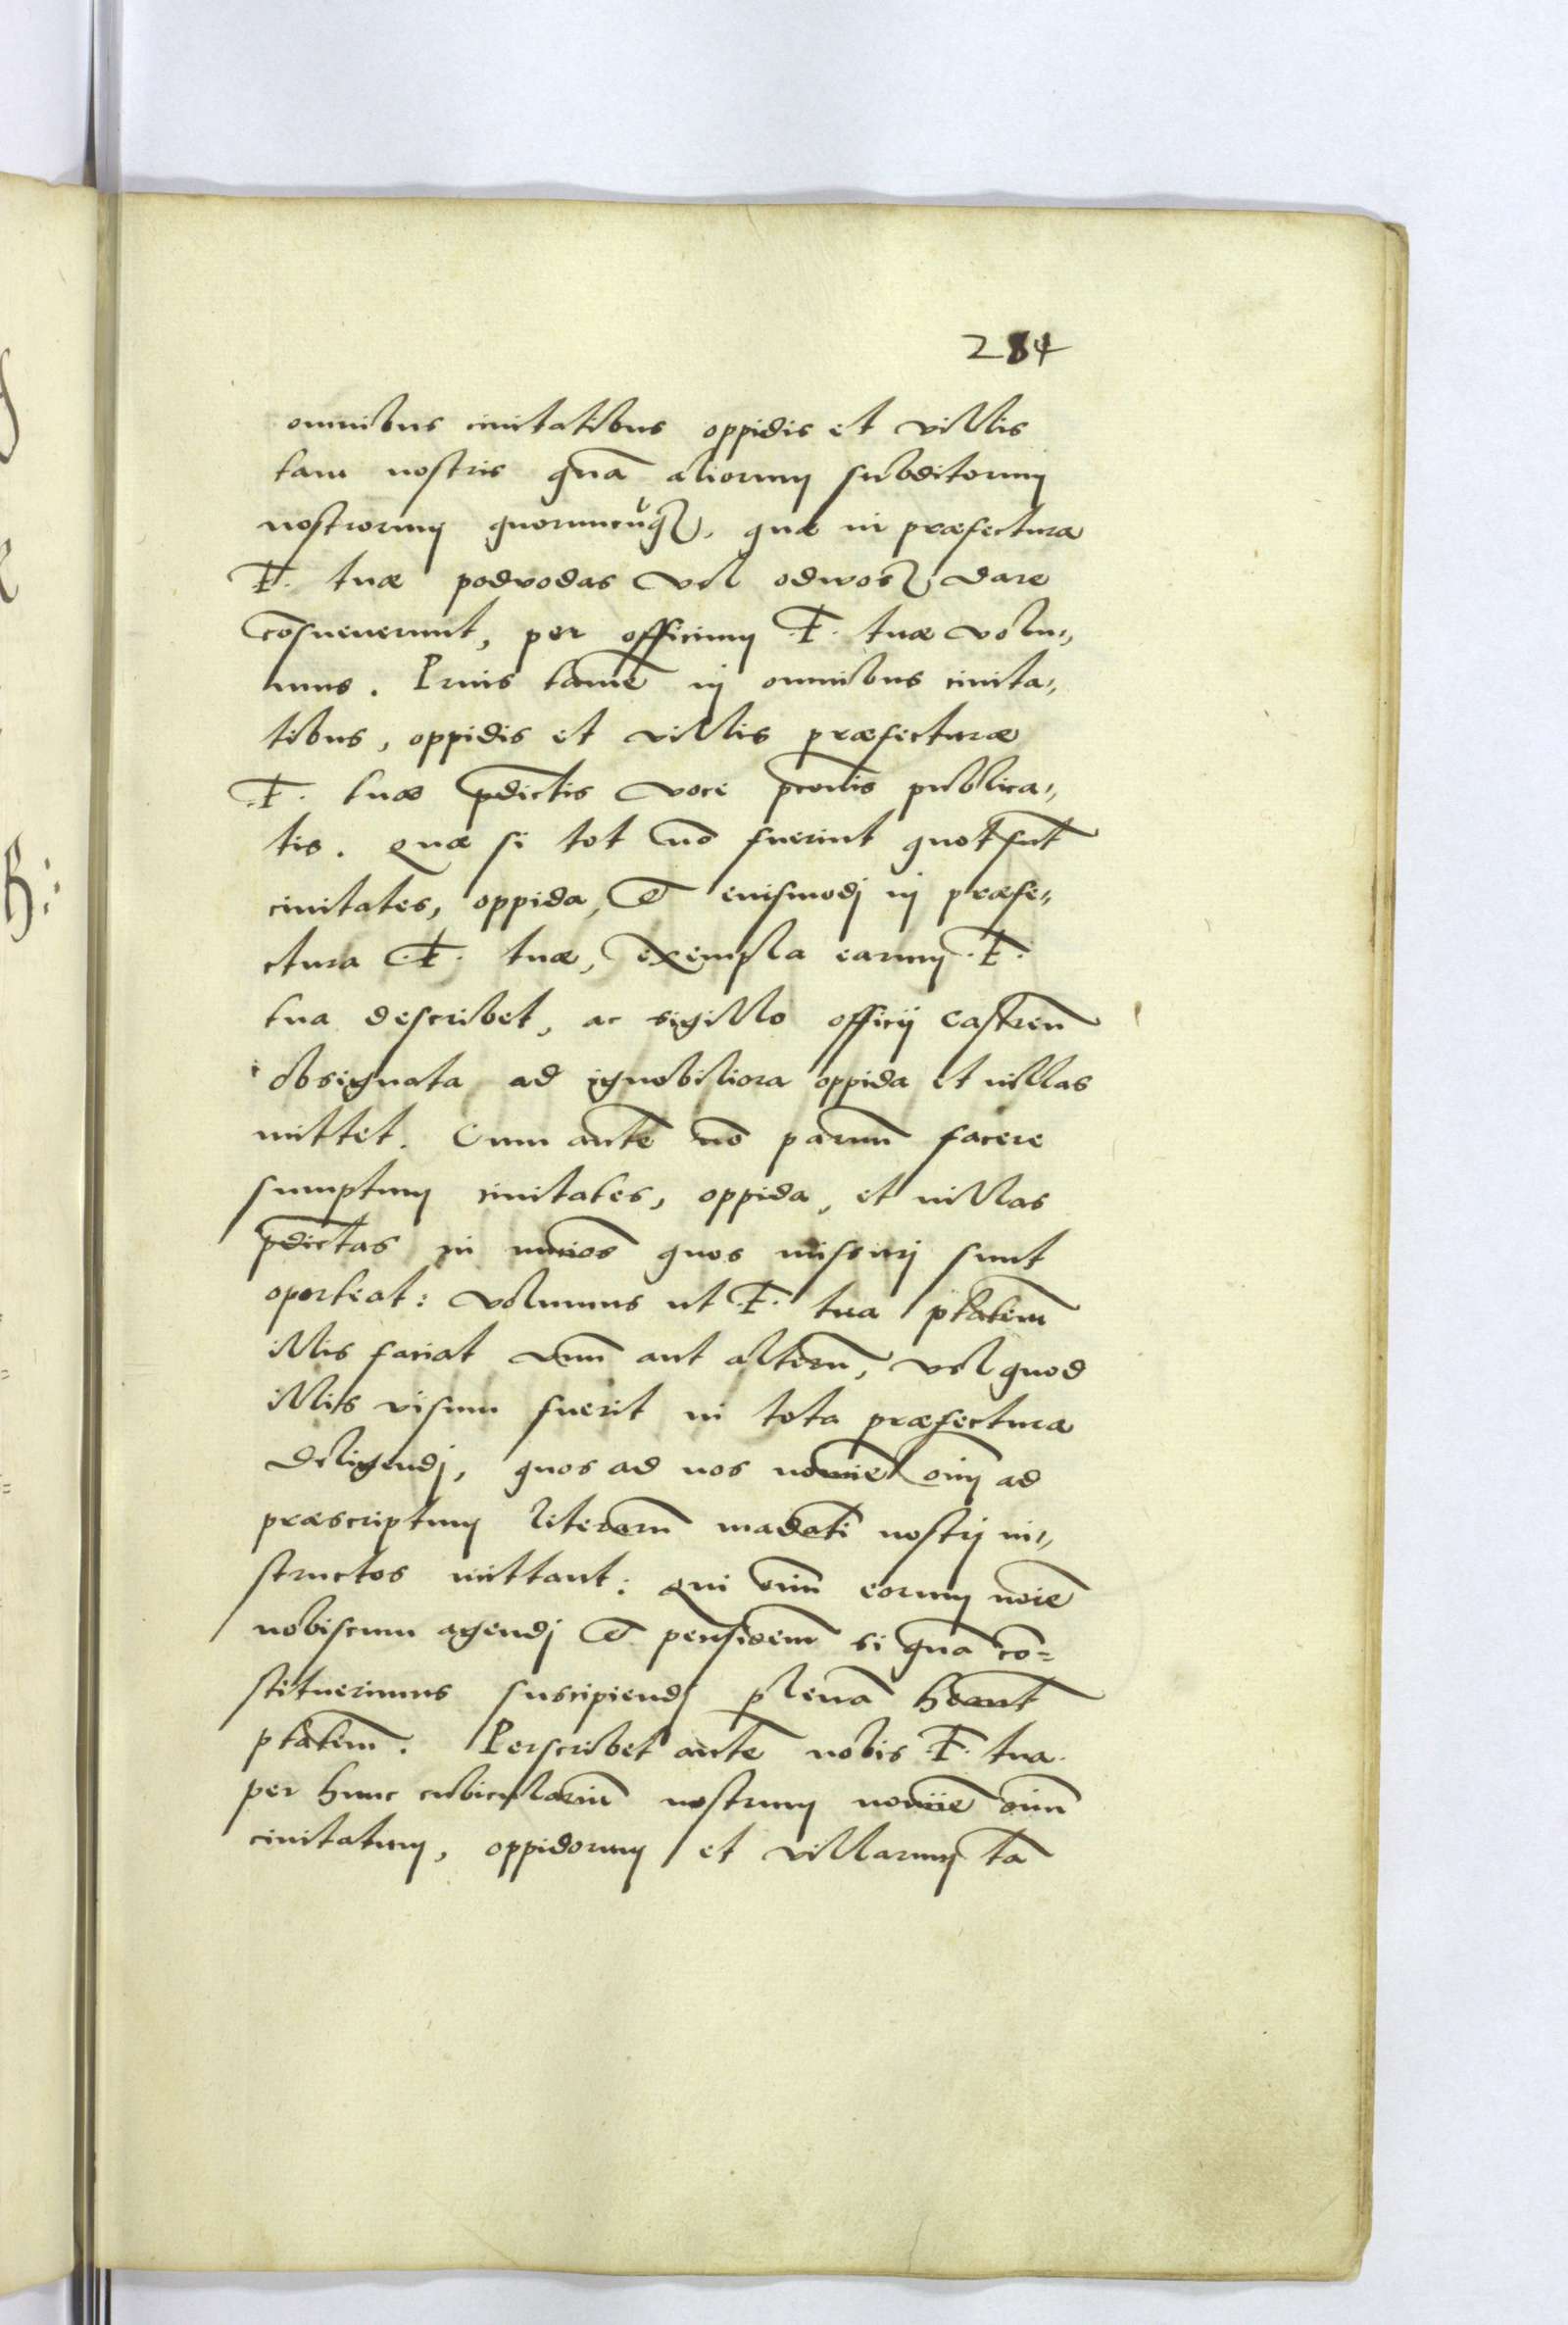 284
omnibus ciuitatibus oppidis et villis
tam nostris quã aliorum subditorum
nostrorum quorumcũq₃, quæ in præfectura
F. tuæ podvodas vel odwos₃ dare
cõsueuerunt, per officium .F. tuæ volu„
mus. Prius tamẽ in omnibus ciuita„
tibus, oppidis et villis præfecturæ
.F. tuæ p̃dictis voce p̃conis publica„
tis. Quæ si tot nõ fuerint quot su̅t
ciuitates, oppida, et eiusmodj in præfe„
ctura .F. tuæ, exempla earum .F.
tua describet, ac sigillo officij castren̅
obsignata ad ignobiliora oppida et uillas
mittet. Cum aute̅ nõ paruu̅ facere
sumptum ciuitates, oppida, et uillas
p̃dictas in nu̅cios quos missurj sunt
oporteat: volumus ut .F. tua p̅tatem
illis faciat vnu̅ aut alteru̅, vel quod
illis visum fuerit in tota præfectura
deligendj, quos ad nos nomine̅ oi̅m ad
præscriptum literaru̅ ma̅dati nostrj in„
structos mittant: Qui oi̅m eorum no̅ie
nobiscum agendj et pensione̅m si qua̅ co̅=
stituerimus suscipiendj plena̅ hea̅nt
p̅tatem. Perscribet aute̅ nobis .F. tua
per hunc cubiculariu̅ nostrum nomine̅ oi̅m
ciuitatum, oppidorum et villarum ta̅